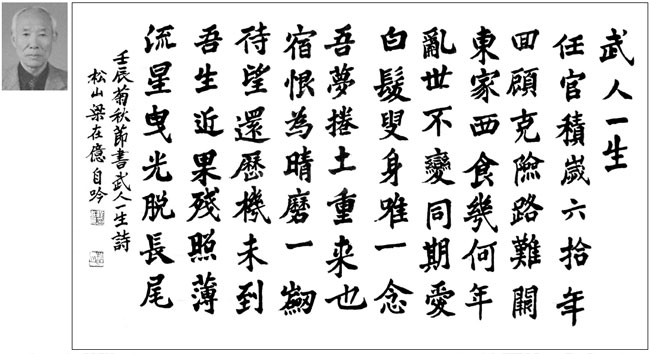 武人一生
任官積歲六拾年
囬顧克險路難關
東家西食幾何年
亂世不變同期愛
白髮叟身唯一念
吾夢捲土重来也
宿恨為晴磨一劒
待望還歷機未到
吾生近果殘照薄
流星曳光脫長尾
壬辰菊秋節書武人一生詩
松山梁在億自吟